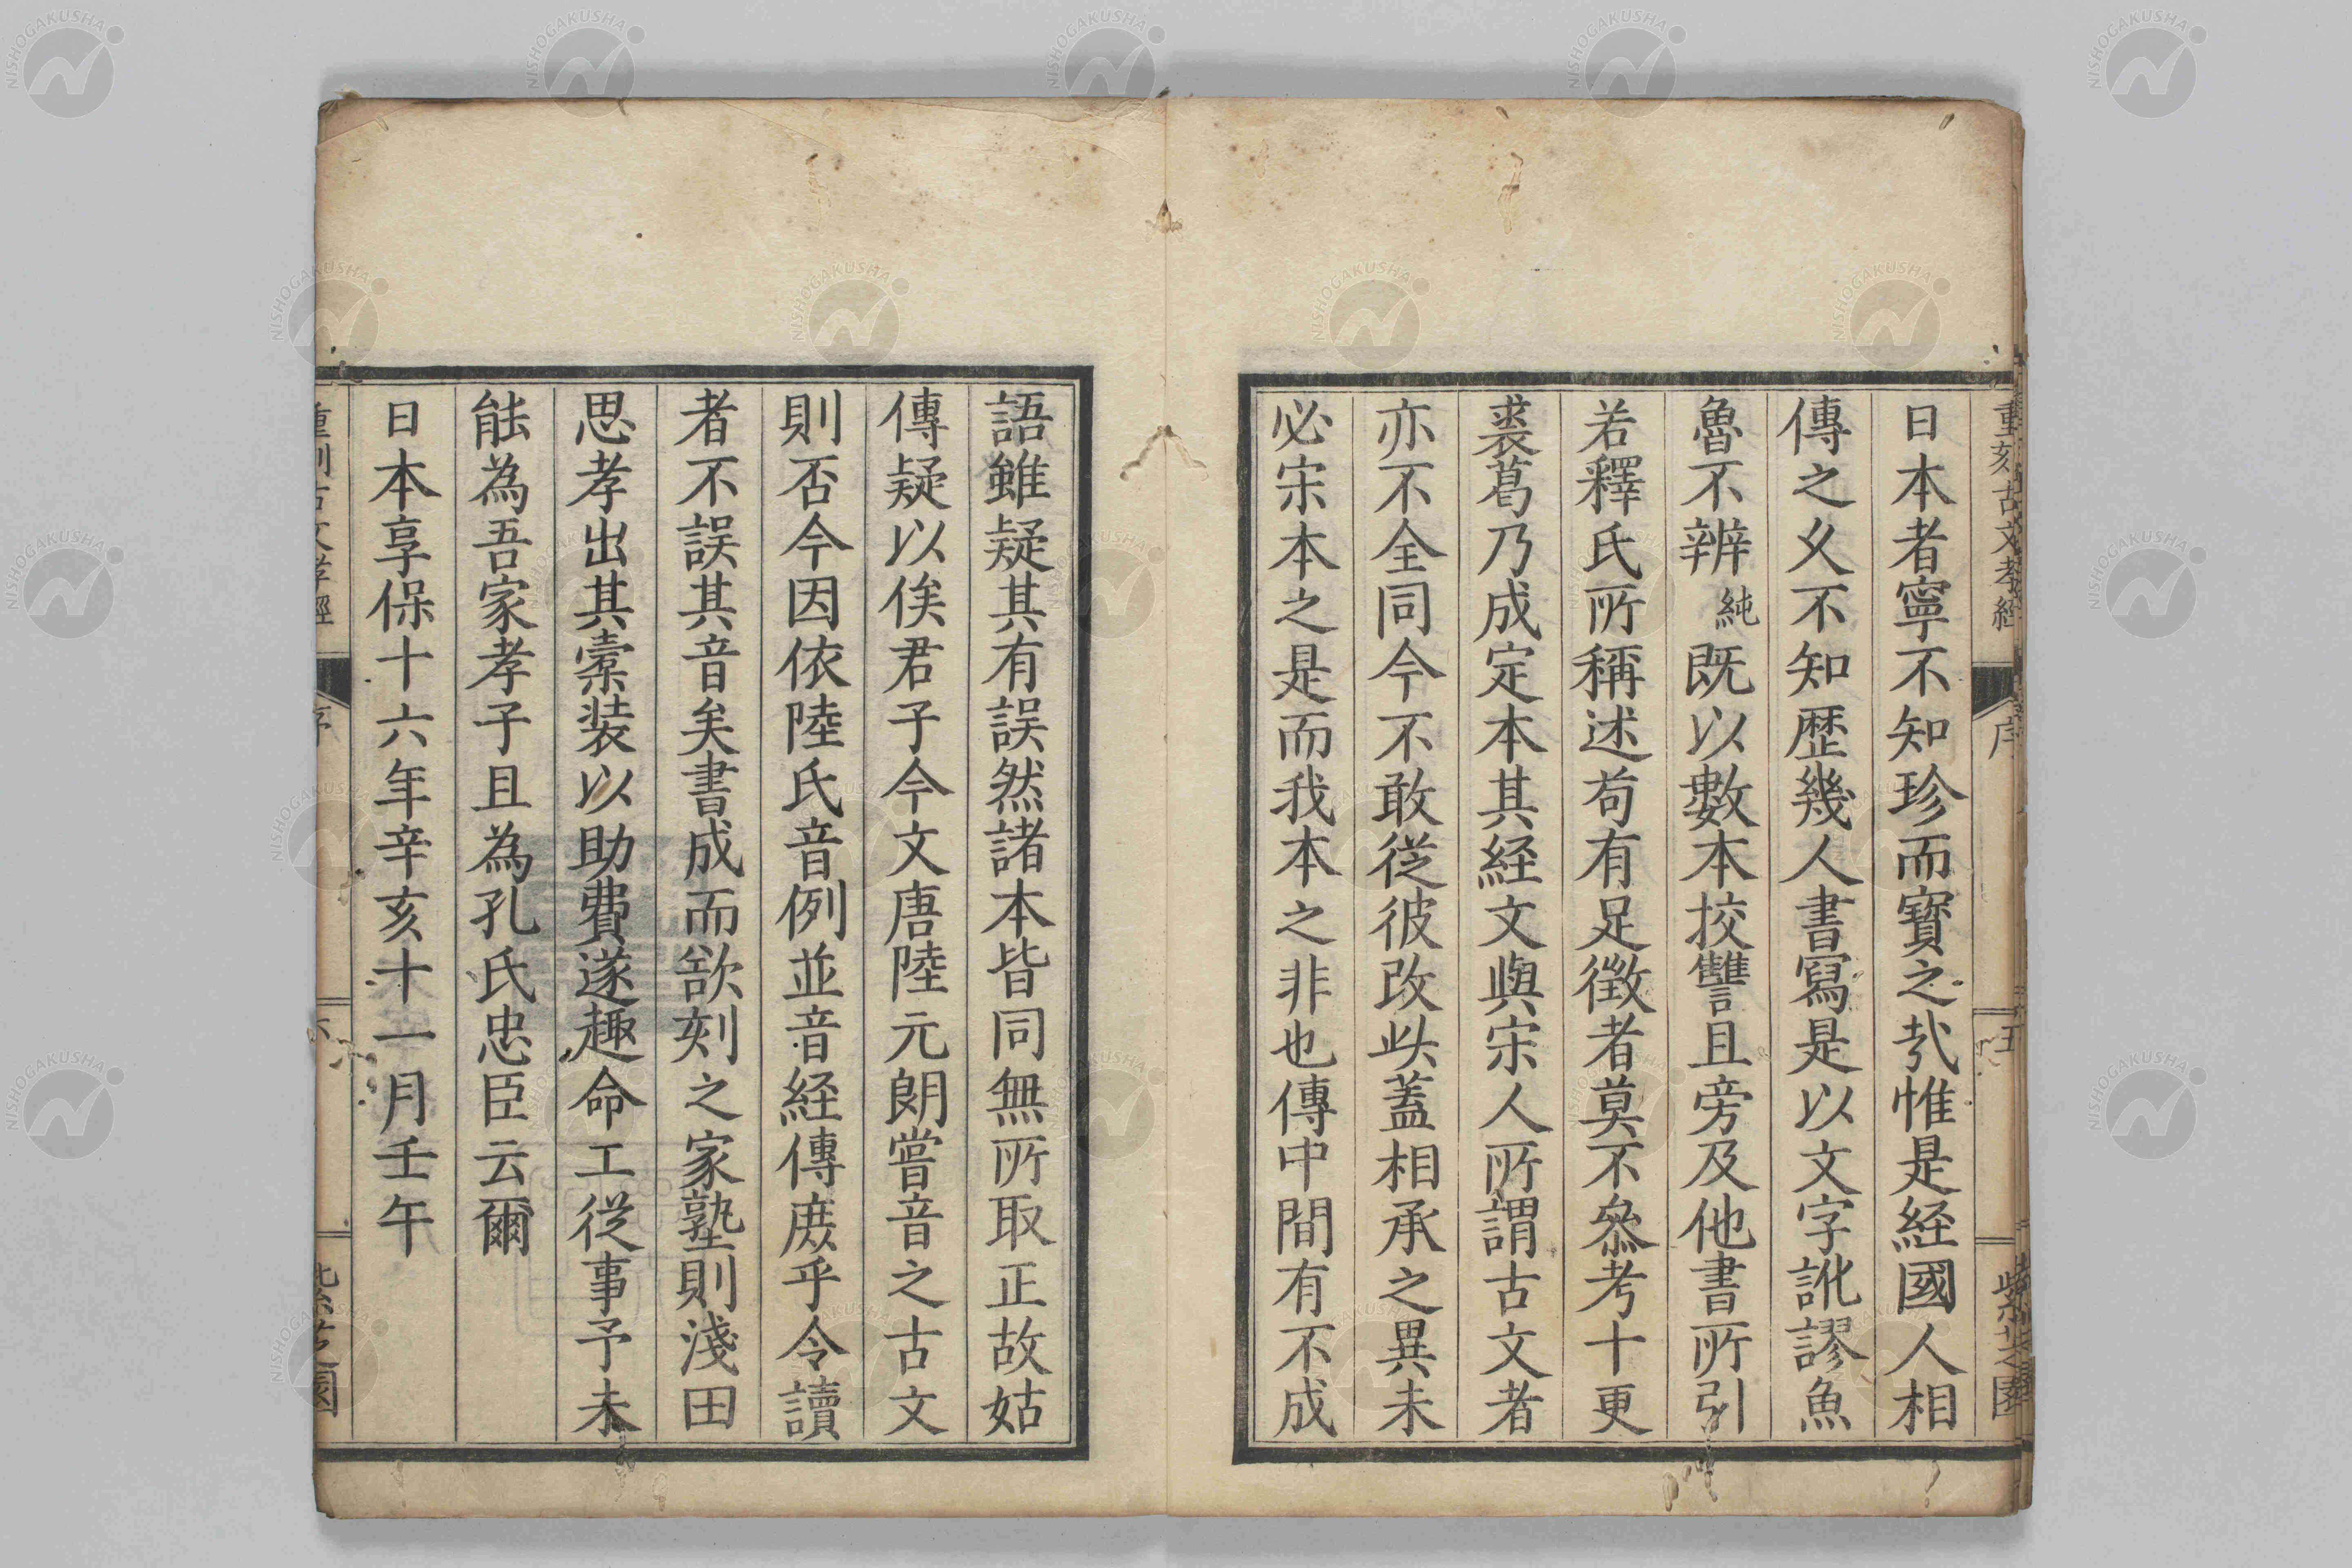 重刻古文孝經
序
五
紫芝園
日本者寧不知珍而寶之㢤惟是経國人相
傳之乆不知歴幾人書寫是以文字訛謬魚
魯不辨純既以數本挍讐且旁及他書所引
若釋氏所稱述苟有足徴者莫不叅考十更
裘葛乃成定本其経文與宋人所謂古文者
亦不全同今不敢従彼改此蓋相承之異未
必宋本之是而我本之非也傳中間有不成
語雖疑其有誤然諸本皆同無所取正故姑
傳疑以俟君子今文唐陸元朗嘗音之古文
則否今因依陸氏音例並音経傳庻乎令讀
者不誤其音矣書成而欲刻之家塾則淺田
思孝出其橐装以助費遂趣命工従事予未
能為吾家孝子且為孔氏忠臣云爾
日本享保十六年辛亥十一月壬午
重刻古文孝經
序
六
紫芝園
NISHOGAKUSHA